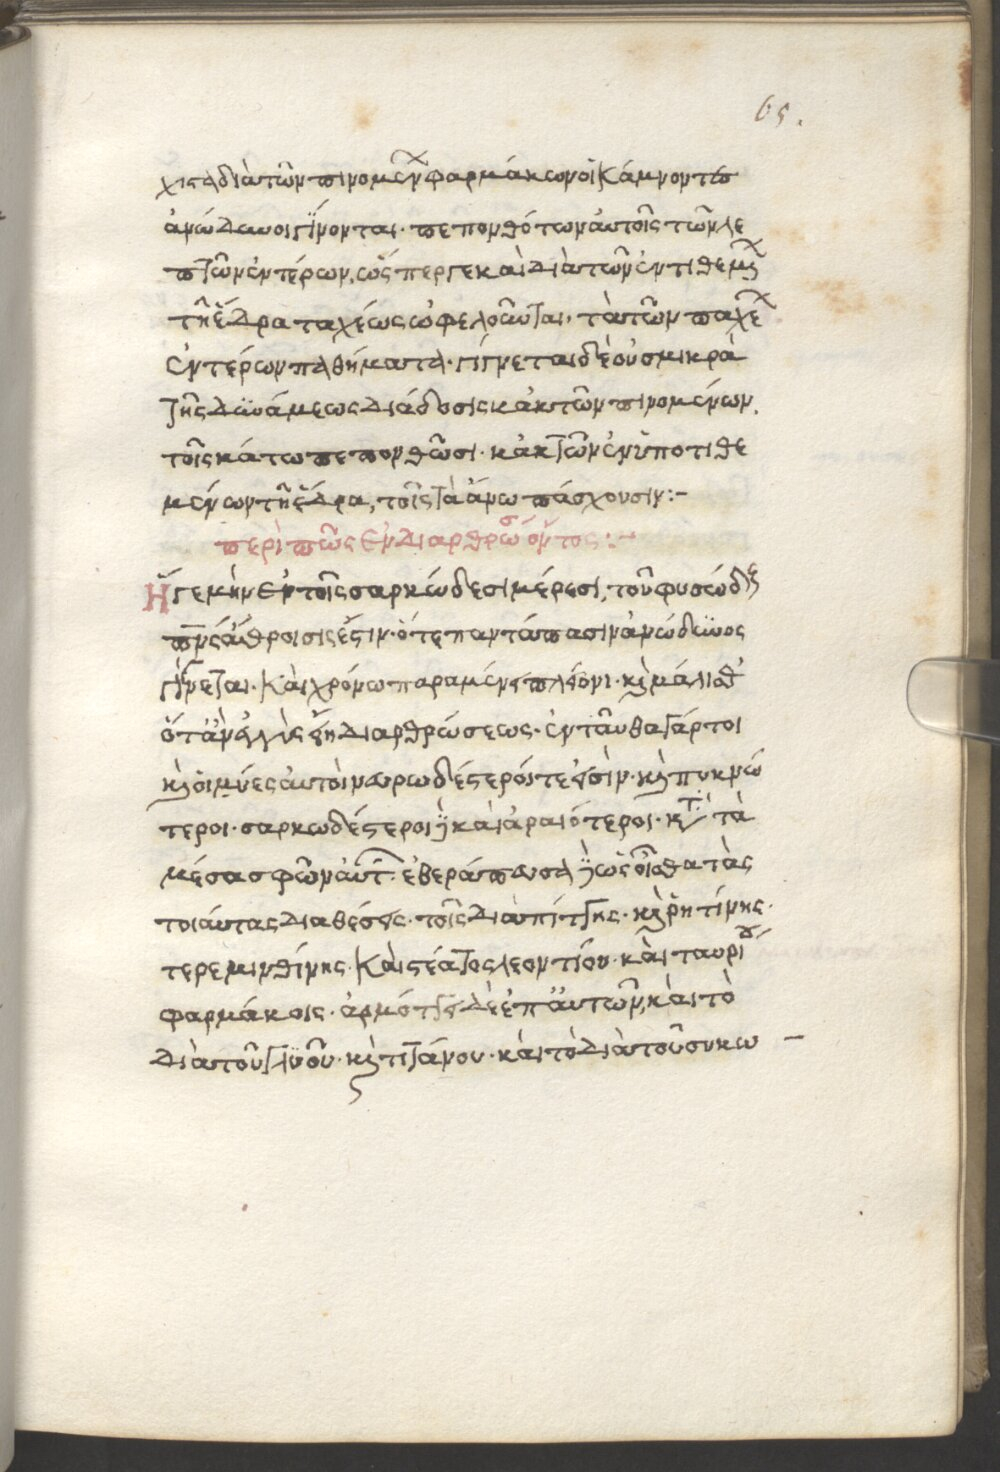 65.
χιστα διὰ τῶν πινομένων φαρμάκων οἱ κάμνοντες
ἀνώδυνοι γίνονται· πεπονθότων αὐτοῖς τῶν λε
πτῶν ἐντέρων, ὥσπερ γε καὶ διὰ τῶν ἐντιθεμένων
τῇ ἕδρα ταχέως ὠφελοῦνται· τὰ τῶν παχέων
ἐντέρων παθήματα· γίγνεται δὲ οὐ σμικρὰ
τῆς δυνάμεως διάδοσις κἀκ τῶν πινομένων
τοῖς κάτω πεπονθῶσι· κἀκ τῶν ἐνὑποτιθε
μένων τῇ ἕδρα, τοῖς τὰ ἄνω πάσχουσιν:-
περὶ πώσεων διαρθρώσεων ὄντος:-
Ἥ γε μὴν ἐν τοῖς σαρκώδεσι μέρεσι, τοῦ φυσώδους
πνς ἄθροισις ἐστιν· ὅτε παντάπασιν ἀνώδυνος
γίνεται· καὶ χρόνω παραμένει πλέονι· καὶ μάλισθ
ὅταν ἐγγὺς ἦ διαρθρώσεως· ἐνταῦθα γάρ τοι
καὶ οἱ μύες αὐτοὶ νευρωδέστεροί τε εἰσὶν· καὶ πυκνώ
τεροι· σαρκωδέστεροι δὲ καὶ ἀραιότεροι· κατὰ τὰ
μέσα σφῶν αὐτῶν· ἐθεράπευσα δὲ ὡς οἶσθα τὰς
τοιαύτας διαθέσεις· τοῖς διὰ πίττης· καὶ ῥητίνης·
τερεμινθίνης· καὶ στέατος λεοντίου· καὶ ταυρίου
φαρμάκοις· ἁρμόττει δὲ ἐπ' αὐτῶν, καὶ τὸ
διὰ τοῦ γλυοῦ· καὶ τιτάνου· καὶ τὸ διὰ τοῦ συκω